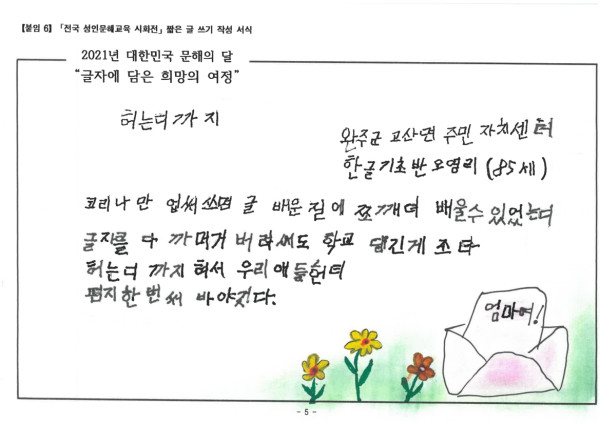 【붙임 6】「전국 성인문해교육 시화전」 짧은 글 쓰기 작성 서식
2021년 대한민국 문해의 달
“글자에 담은 희망의 여정”
허는디 까지
완주군 고산면 주민 자치센터
한글기초반 오영리 (85세)
코리나 만 업써쓰면 글 배운 질에 쪼개 더 배울수 있었는디
글자를 다 까머거 버려써도 학교 댕긴게 조타
허는디 까지 허서 우리 애들헌티
편지 한 번 써 바야것다.
엄마여!
- 5 -